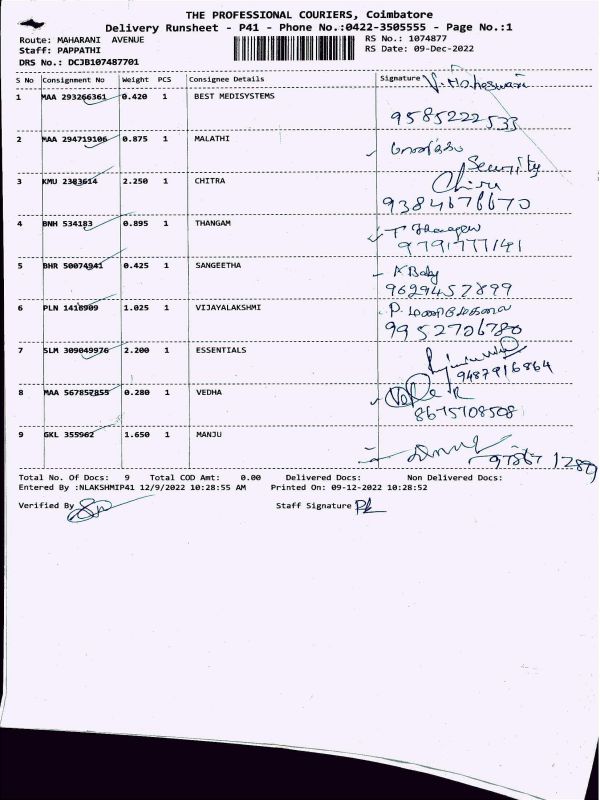 THE PROFESSIONAL COURIERS, Coimbatore
Delivery Runsheet - P41 - Phone No.:0422-3505555 - Page No.:1
Route: MAHARANI AVENUE RS No.: 1074877
Staff: PAPPATHI RS Date: 09-Dec-2022
DRS No.: DCJB107487701
S No Consignment No Weight PCS Consignee Details Signature V. Maheswari
1 MAA 293266361 0.420 1 BEST MEDISYSTEMS
9585222533
2 MAA 294719106 0.875 1 MALATHI
Security
3 KMU 2303614 2.250 1 CHITRA
9384676670
4 BNH 534183 0.895 1 THANGAM
9791777141
5 BHR 50074941 0.425 1 SANGEETHA A Baby
9629457899
6 PLN 1416909 1.025 1 VIJAYALAKSHMI P. மணிமேகலை
9952706780
7 SLM 309049976 2.200 1 ESSENTIALS
9487916864
8 MAA 567857855 0.280 1 VEDHA
8675708508
9 GKL 355962 1.650 1 MANJU
Total No. Of Docs: 9 Total COD Amt: 0.00 Delivered Docs: Non Delivered Docs:
Entered By :NLAKSHMIP41 12/9/2022 10:28:55 AM Printed On: 09-12-2022 10:28:52
Verified By Staff Signature